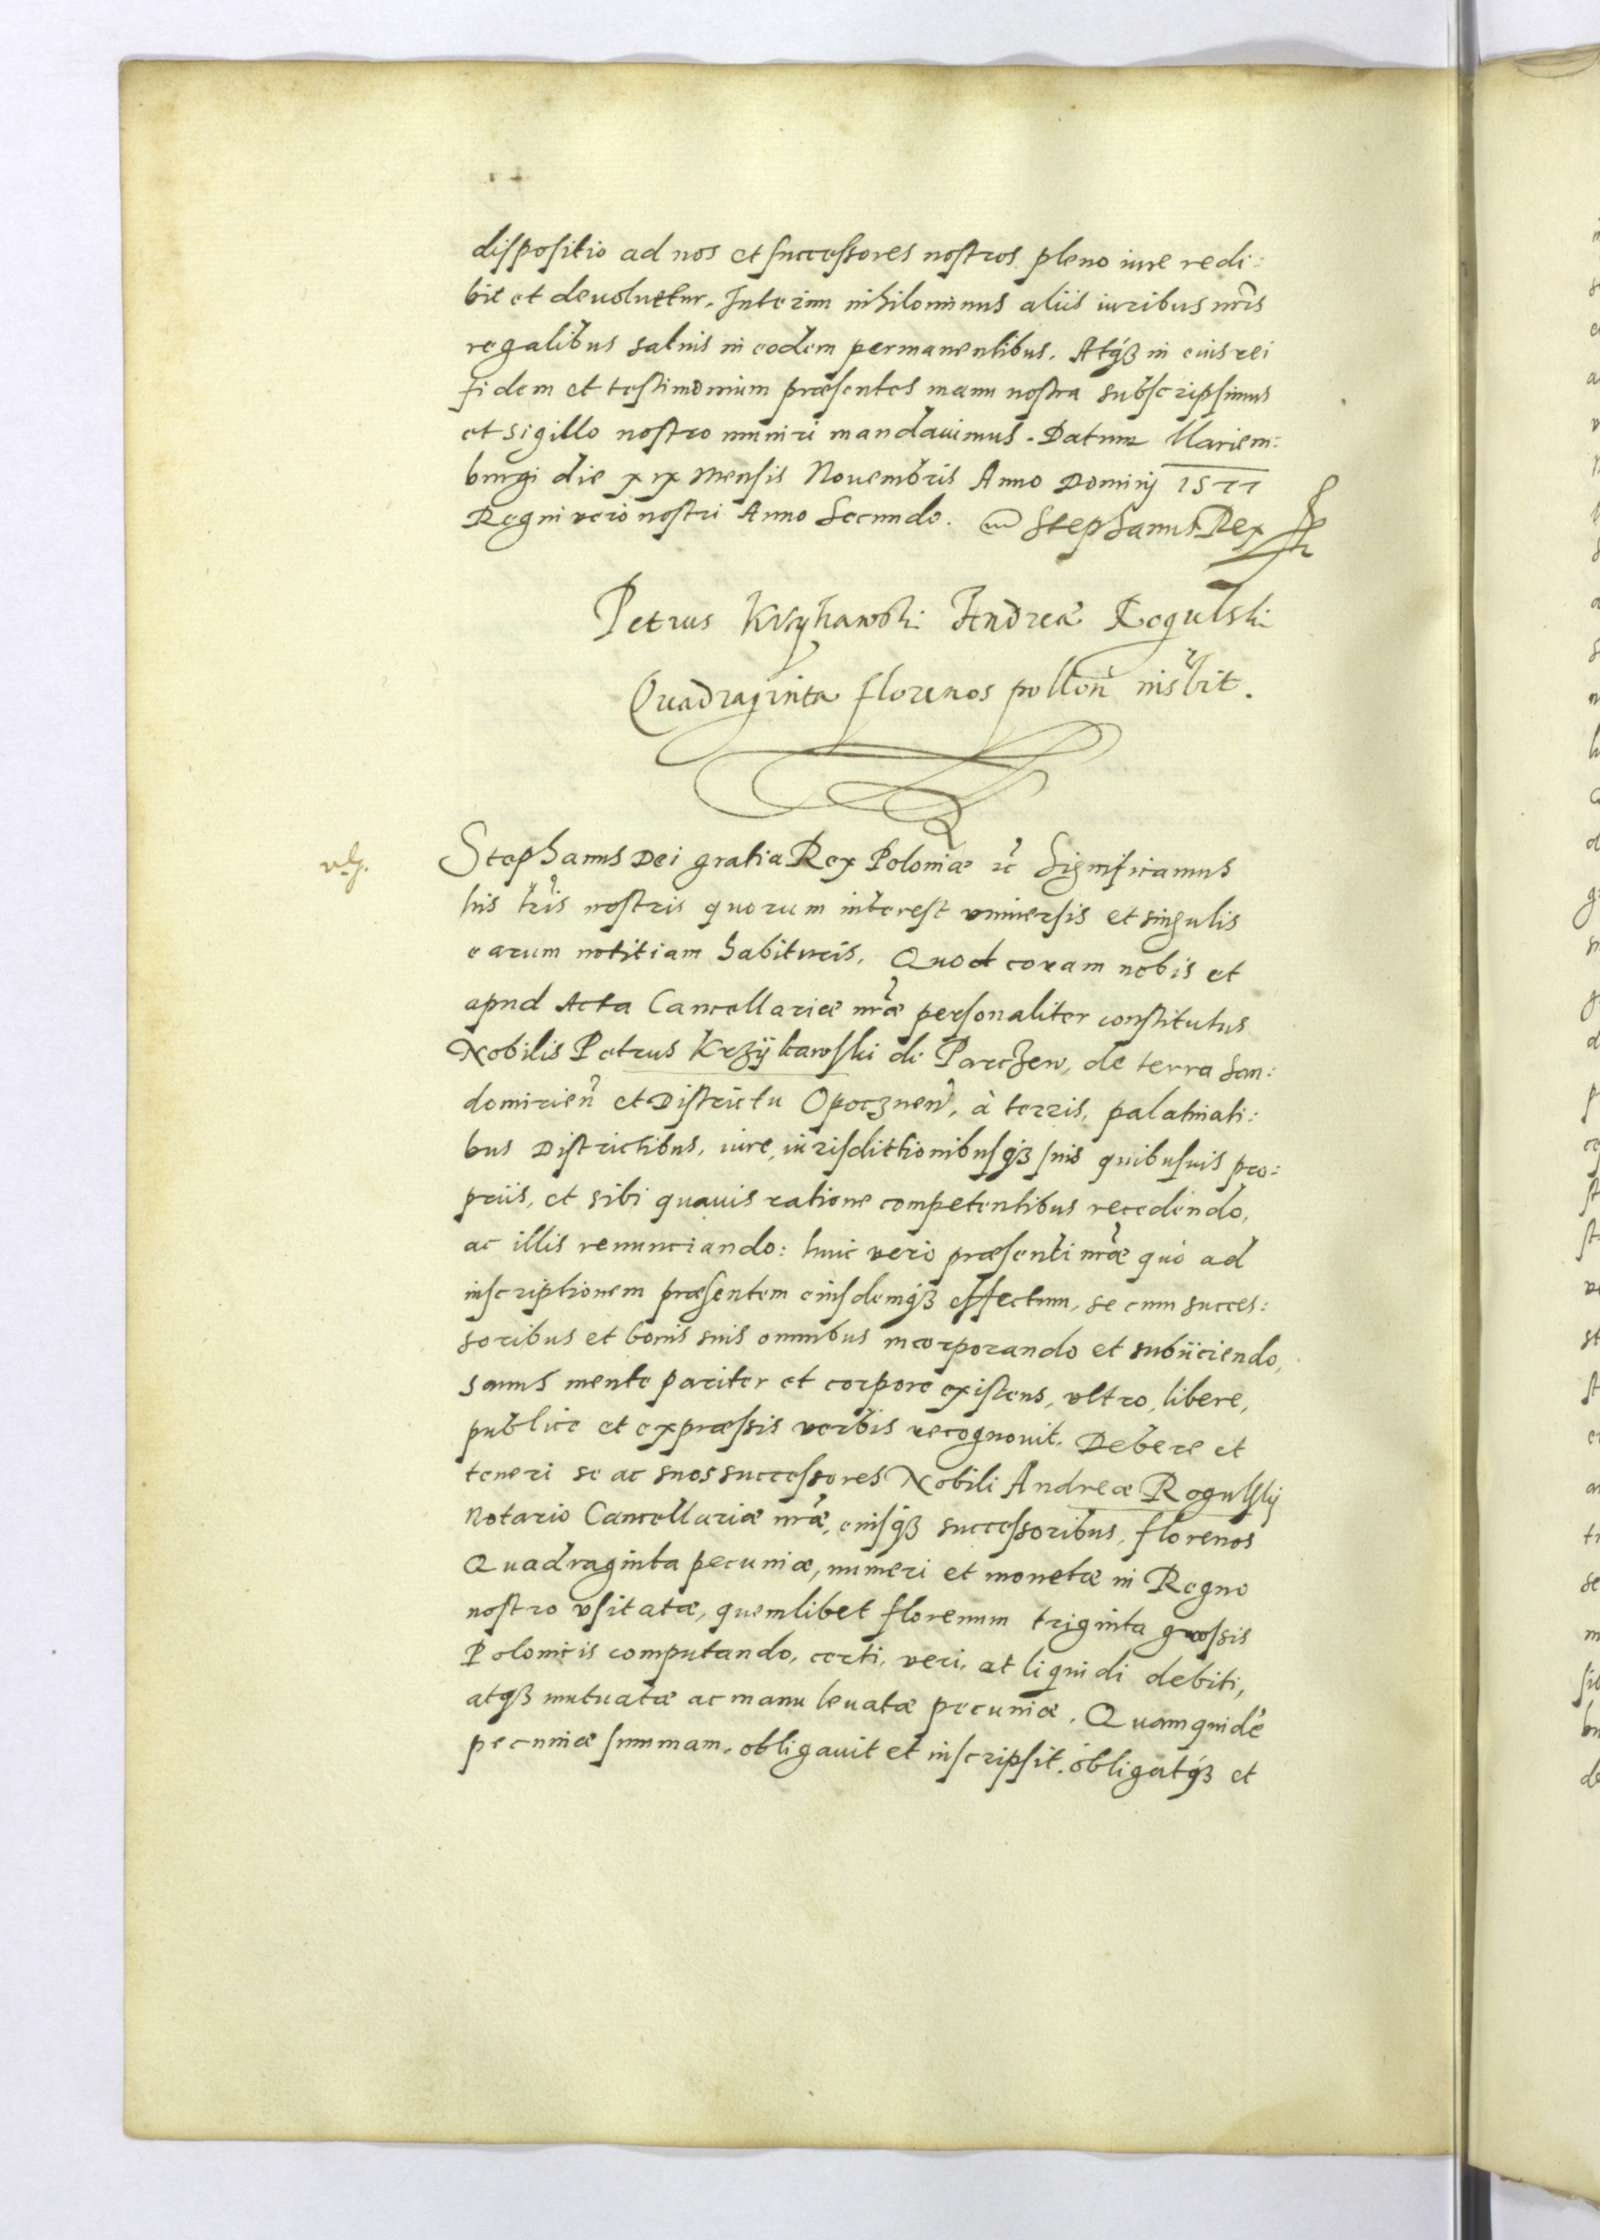 dispositio ad nos et successores nostros pleno iure redi:
bit et deuoluetur. Interim nihilominus aliis iuribus nr̃is
regalibus saluis in eodem permanentibus. Atq́ꝫ in eius rei
fidem et testimonium præsentes manu nostra subscripsimus
et sigillo nostro muniri mandauimus. Datum Mariem:
burgi die xix Mensis Nouembris Anno Dominj 1577
Regni vero nostri Anno Secundo. Stephanus Rex
Petrus Krzykawski Andreæ Rogulski
Quadraginta florenos pollon̄ insbit.
Stephanus Dei gratia Rex Poloniæ ꝛc̃ Significamus
his lr̃is nostris quorum interest vniuersis et singulis
earum notitiam habituris. Quod coram nobis et
apud Acta Cancellariæ nr̃æ personaliter constitutus
Nobilis Petrus Krzÿkawski de Parczew, de terra San:
domirien̄ et Districtu Opocznen̄, à terris, palatinati:
bus Districtibus, iure, iurisdictionibusq́ꝫ suis quibusuis pro:
priis, et sibi quauis ratione competentibus recedendo,
ac illis renunciando: huic vero præsenti nr̃æ quo ad
inscriptionem præsentem eiusdemq́ꝫ effectum, se cum succes:
soribus et bonis suis omnibus incorporando et subiiciendo,
sanus mente pariter et corpore existens, vltro, libere,
publice et expræssis verbis recognouit. Debere et
teneri se ac suos successores Nobili Andreæ Rogulskij
Notario Cancellariæ nr̃æ, eiusq́ꝫ successoribus, florenos
Quadraginta pecuniæ, numeri et monetæ in Regno
nostro vsitatæ, quemlibet florenum triginta grossis
Polonicis computando, certi, veri, at liquidi debiti,
atq́ꝫ mutuatæ ac manu leuatæ pecuniæ. Quamquidẽ
pecuniæ summam, obligauit et inscripsit, obligatq́ꝫ et